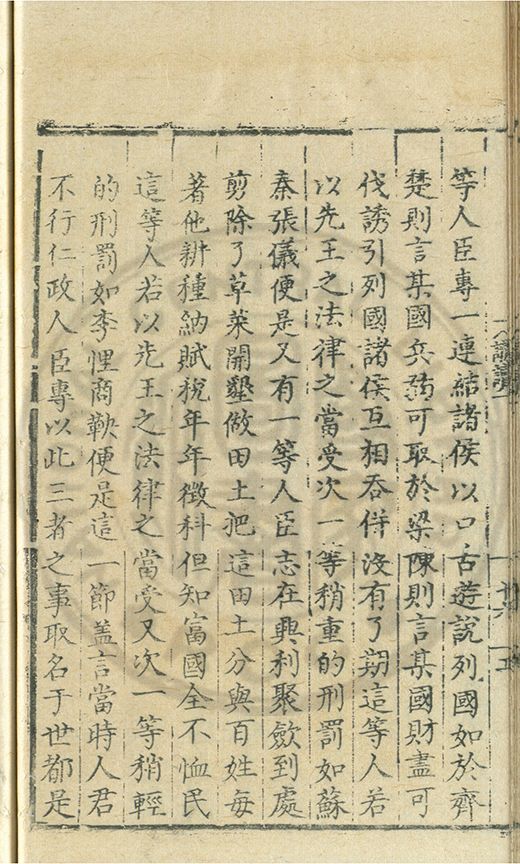 等人臣專一連結諸侯以口舌遊說列國如於齊
楚則言某國兵弱可取於梁陳則言某國財盡可
伐誘引列國諸侯互相吞併沒有了期這等人若
以先王之法律之當受次一等稍重的刑罰如蘇
秦張儀便是又有一等人臣志在興利聚歛到處
剪除了草萊開墾做田土把這田土分與百姓每
著他耕種納賦稅年年徵科但知富國全不恤民
這等人若以先王之法律之當受又次一等稍輕
的刑罰如李悝商鞅便是這一節盖言當時人君
不行仁政人臣專以此三者之事取名于世都是